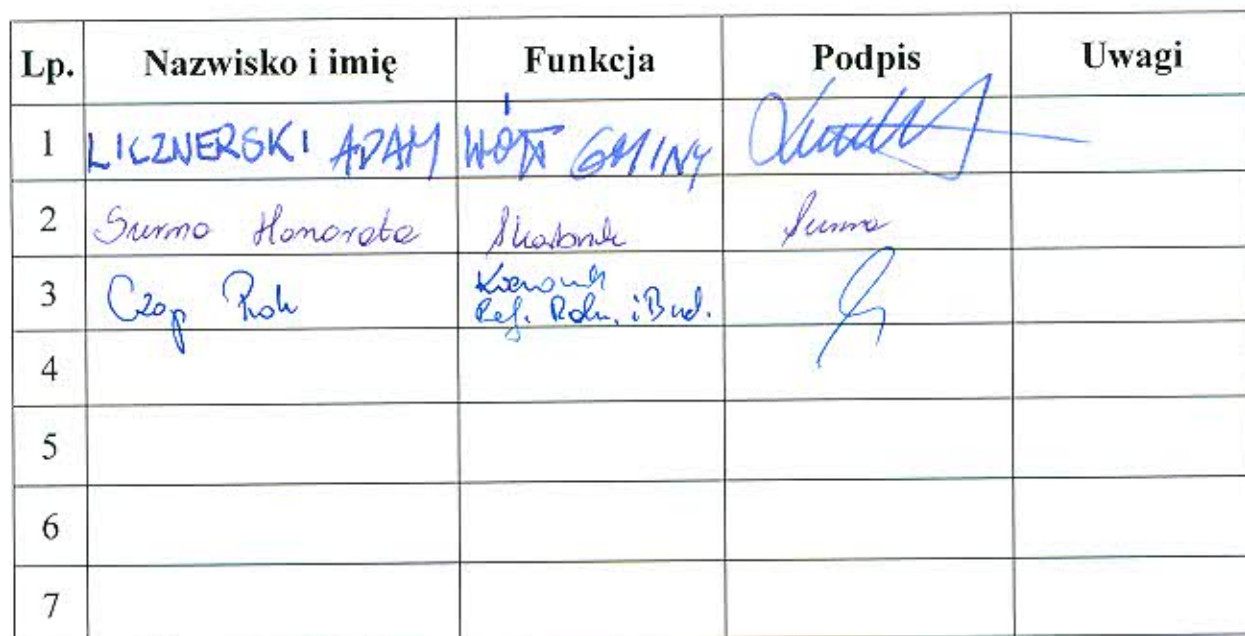 Lp. Nazwisko i imię Funkcja Podpis Uwagi
1 LICZNERSKI ADAM WÓJT GMINY
2 Surma Honorata Skarbnik Surma
3 Czap Kierownik
Ref. Roln. i Bud.
4
5
6
7